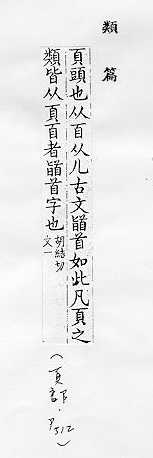 類篇
頁頭也从𦣻从儿古文䭫首如此凡頁之
類皆从頁𦣻者䭫首字也
胡結切
文一
(頁部．P312)